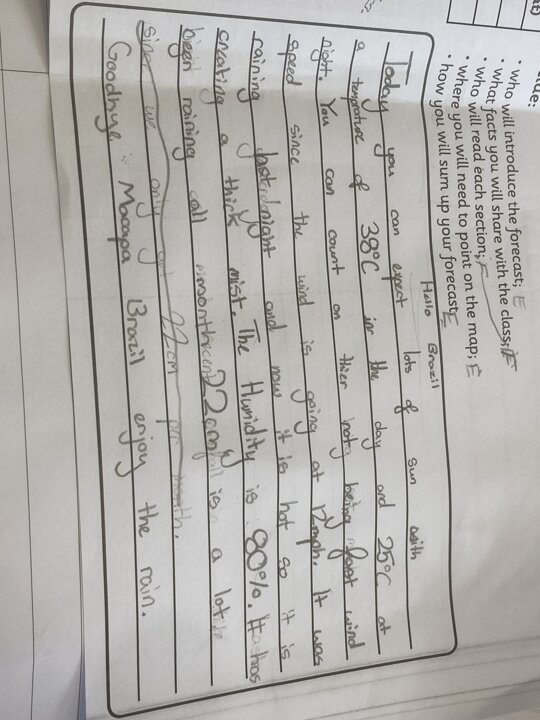 • who will introduce the forecast; E
• what facts you will share with the class; E
• who will read each section; E
• where you will need to point on the map; E
• how you will sum up your forecast. E
Hello Brazil
Today you can expect lots of sun with
a temprature of 38°C in the day and 25°C at
night. You can count on thier noty being fast wind
speed since the wind is going at 12mph. It was
raining last night and now it is hot so it is
creating a think mist. The Humidity is 80%. It has
been raining all 22cm is a lot
since we only 22cm month.
Goodbye Macapa Brazil enjoy the rain.